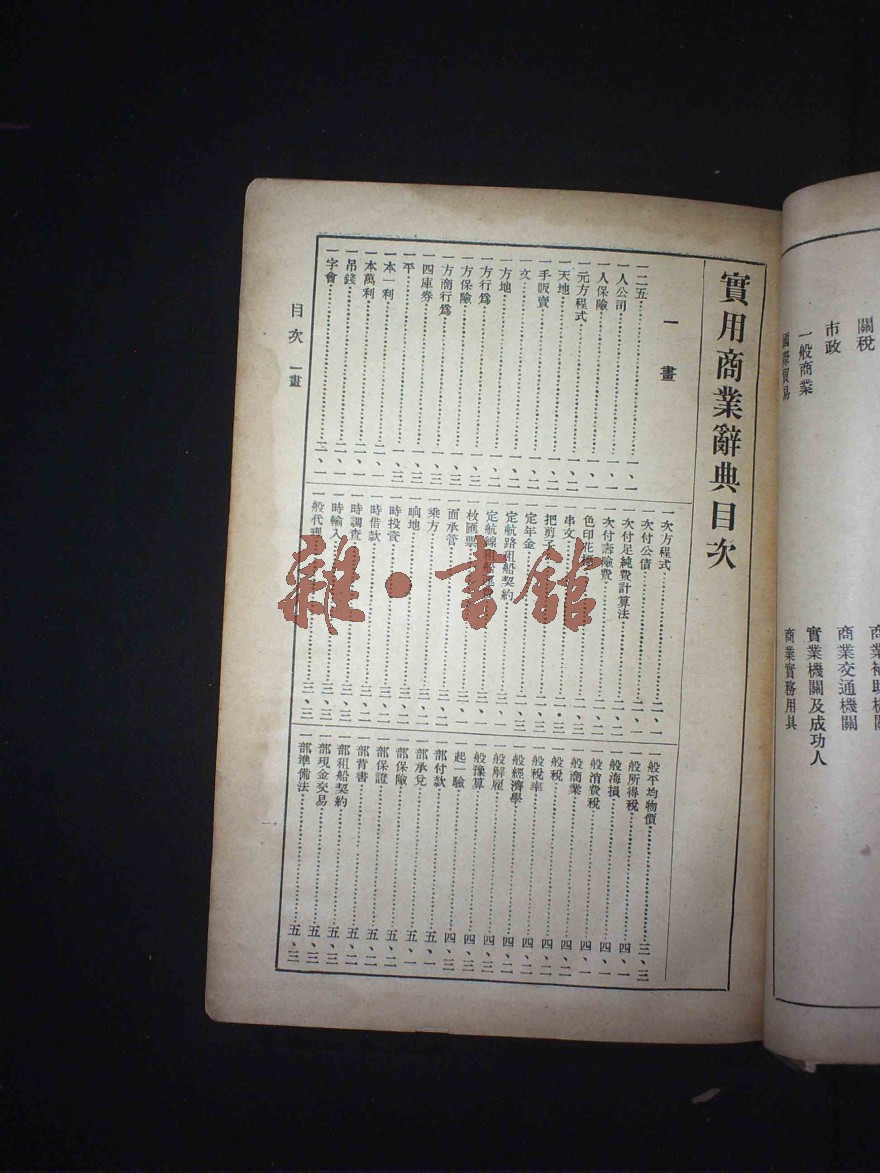 實用商業辭典目次
一畫
一二五………一、一
一人公司………一、一
一人保險………一、一
一元方程式………一、一
一天地………一、二
一手販賣………一、二
一文………一、二
一方地………一、二
一方行爲………一、三
一方保險………一、三
一方商行爲………一、三
一四庫券………一、三
一平………一、三
一本一利………二、一
一本萬利………二、一
一吊錢………二、一
一字會………二、一
一次方程式………二、一
一次付公債………二、一
一次付足純費計算法………二、二
一次付壽險費………二、二
一色印花
一串文………二、三
一把剪子………二、三
一定年金………二、三
一定航路租船契約………三、一
一定航線
一枚匯票………三、一
一面承管………三、二
一乘方………三、二
一晌地………三、二
一時投資………三、二
一時借款………三、二
一時調查………三、三
一時輸入………三、三
一般代理………三、三
一般平均物價………三、三
一般所得稅………四、一
一般海損………四、一
一般消費稅………四、一
一般商業………四、二
一般稅………四、二
一般稅率………四、二
一般經濟學………四、二
一般解雇………四、三
一般豫算………四、三
一起一驗………四、三
一部付款………五、一
一部承兌………五、一
一部保險………五、二
一部保證………五、二
一部背書………五、二
一部租船契約………五、三
一部現金交易………五、三
一部準備法………五、三
目次 一畫
一
關稅
市政
一般商業
國際貿易
商業補助機關
商業交通機關
實業機關及成功人
商業實務用具
雜·書館